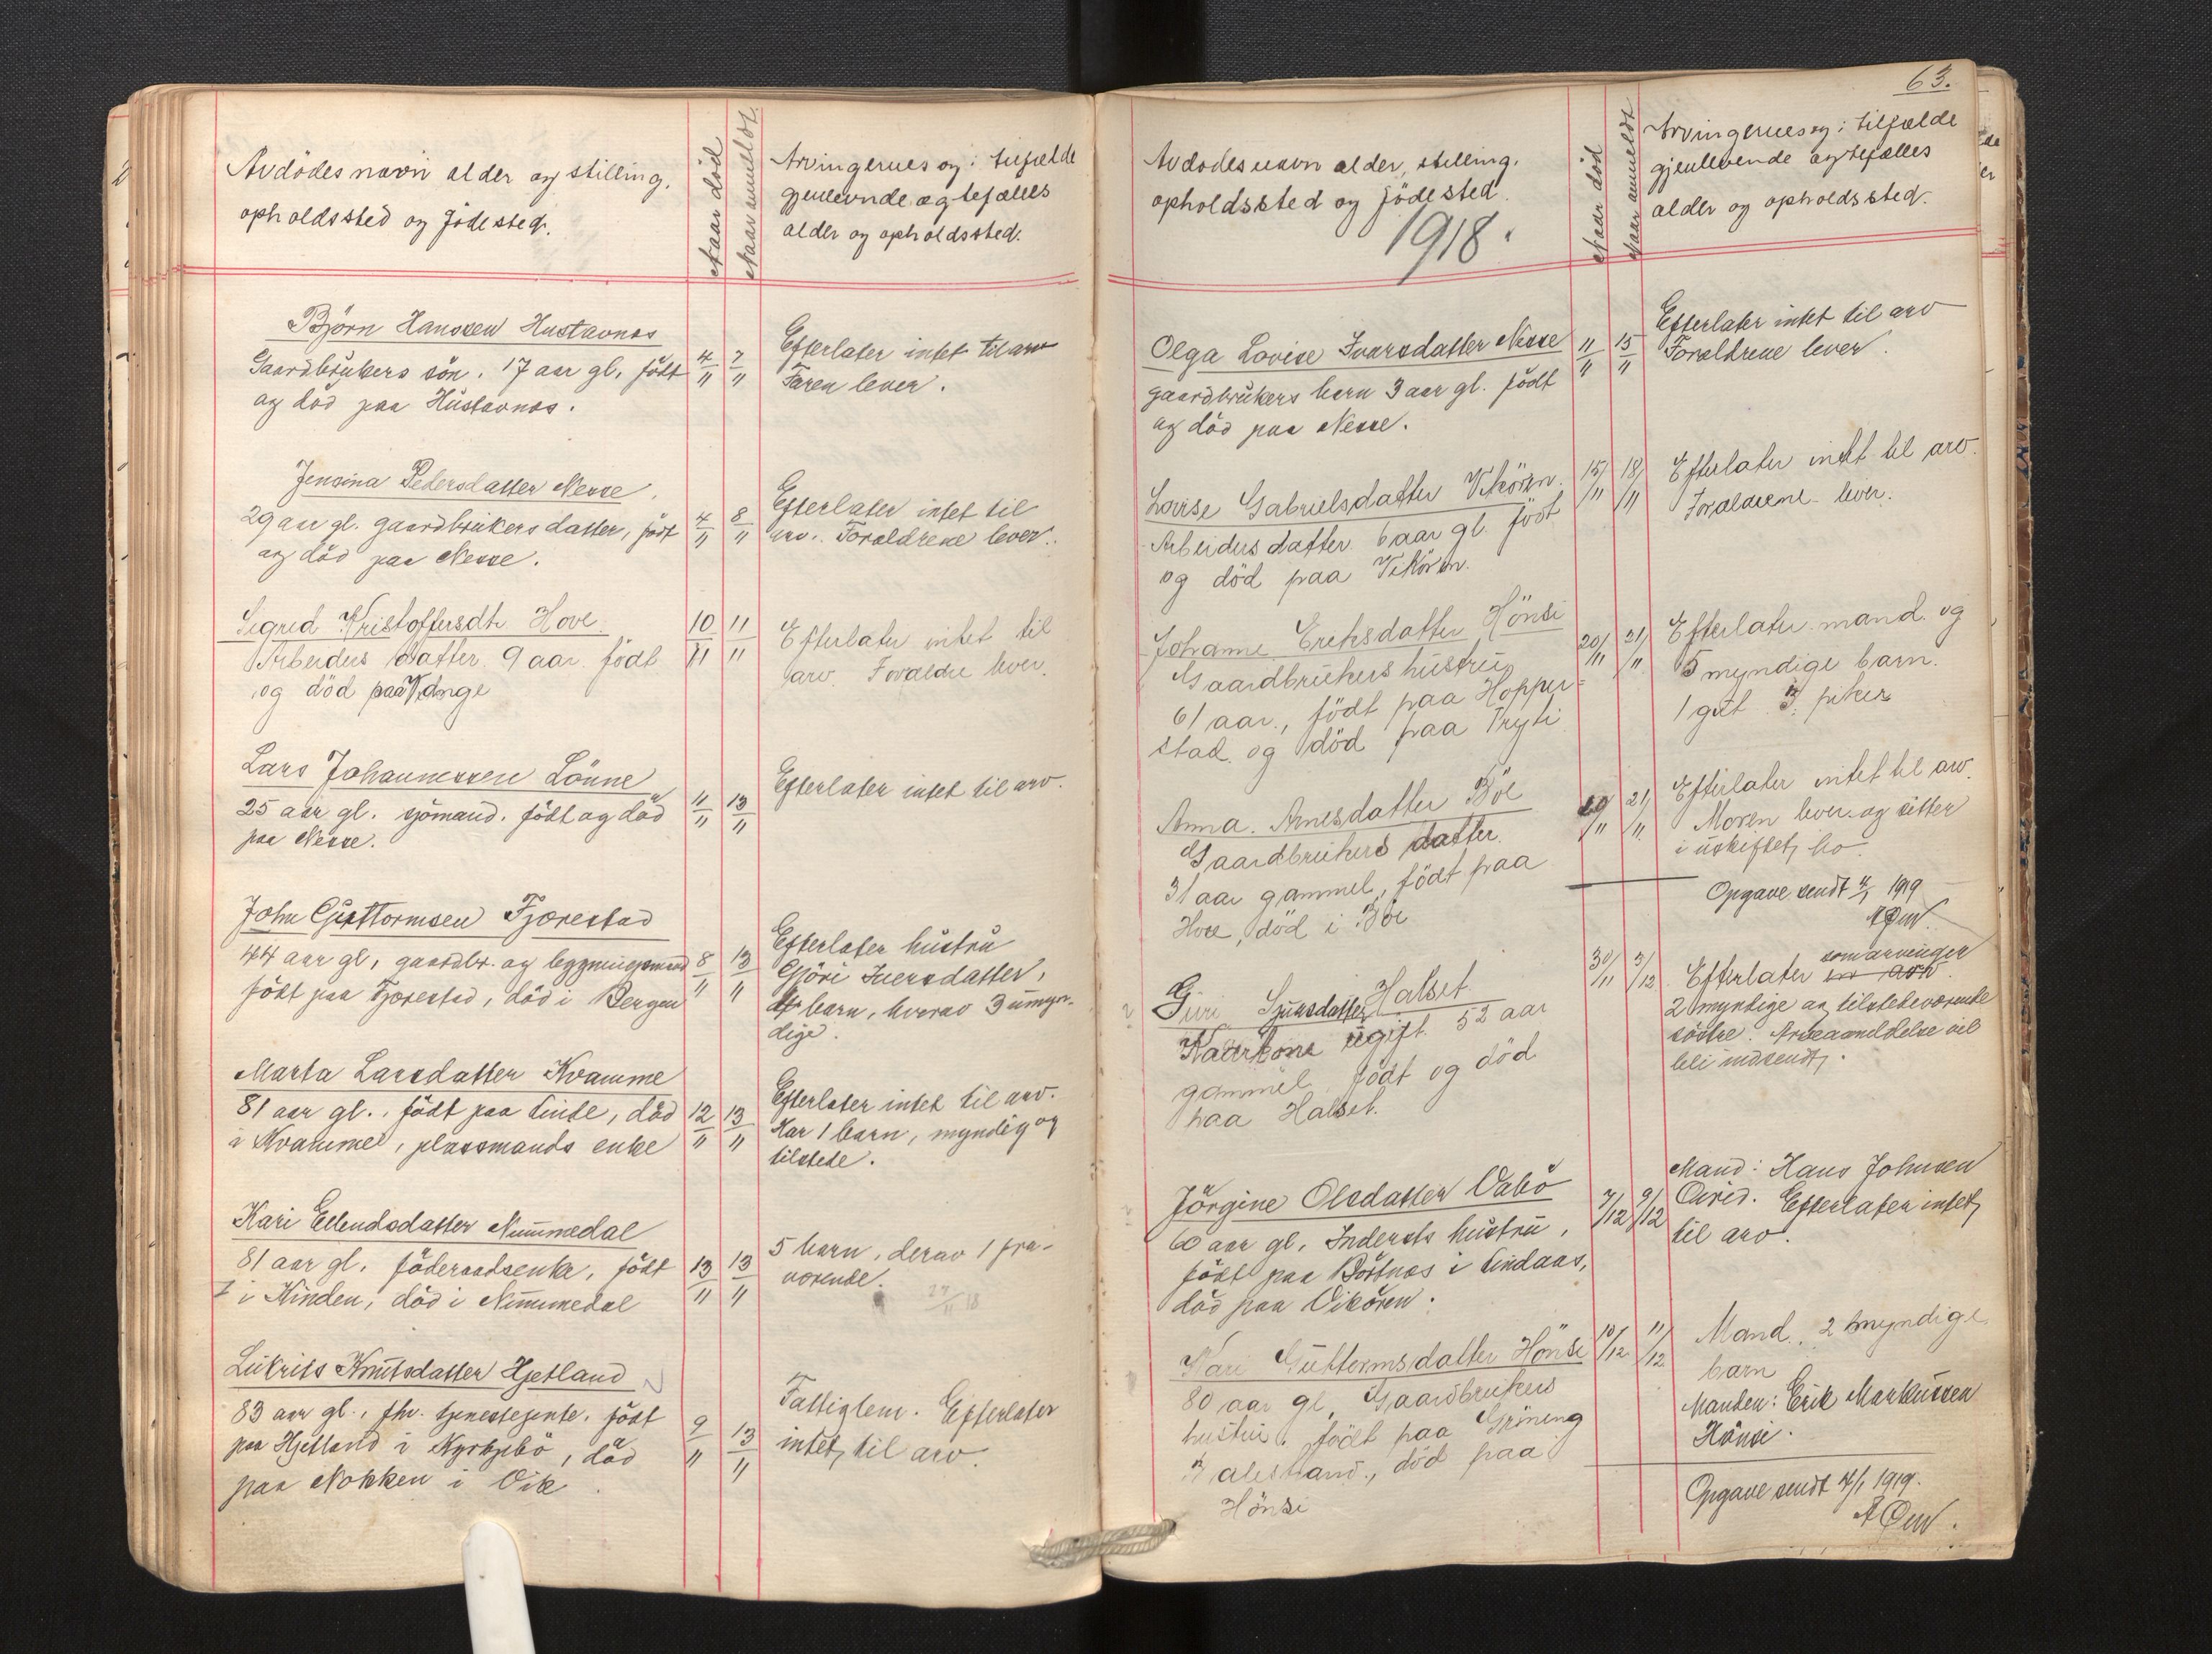 Avdödes navn alder og stilling,
opholdssted og födested.
Naar död
Naar anmeldt.
Arvingernes og i tilfælde
gjenlevnde ægtefælles
alder og opholdssted.
Björn Hanssen Hustavnes
Gaardbrukers sön. 17 aar gl. født
og død paa Hustavnes.
4/11
7/11
Efterlater intet til arv
Faren lever.
Jensina Pedersdatter Nesse,
29 aar gl. gaardbrukers datter, født
og död paa Nesse.
4/11
8/11
Efterlater intet til
arv. Forældrene lever.
Sigrid Kristoffersdtr Hove
Arbeiders datter 9 aar födt
og död paa Vange
10/11
11/11
Efterlater intet til
arv. Forældre lever.
Lars Johannessen Lönne
25 aar gl. sjömand. födt og död
paa Nesse.
11/11
13/11
Efterlater intet til arv.
John Guttormsen Fjærestad
44 aar gl, gaardbr. og bygningsmand
födt paa Fjærestad, död i Bergen
8/11
13/11
Efterlater hustru
Gjöri Iversdatter,
barn, hvorav 3 umyn-
dige.
Marta Larsdatter Kvamme
81 aar gl., födt paa Linde, död
i Kvamme, plassmands enke
12/11
13/11
Efterlater intet til arv.
Har 1 barn, myndig og
tilstede.
Kari Ellendsdatter Nummedal
81 aar gl. föderaadsenke, födt
i Kinden, död i Nummedal
13/11
13/11
5 barn, derav 1 fra-
værende.
27/11 18
Lukrits Knutsdatter Hjetland
83 aar gl., fhv. tjenestejente. födt
paa Hjetland i Kyrkjebö, död
paa Nokken i Vik
9/11
13/11
Fattiglem. Efterlater
intet til arv.
63.
Avdödes navn alder, stilling.
opholdssted og födested.
1918.
Naar död
Naar anmeldt.
Arvingernes og i tilfælde
gjenlevende ægtefælles
alder og opholdssted.
Olga Lovise Ivarsdatter Nesse
gaardbrukers barn 3 aar gl. födt
og död paa Nesse.
11/11
15/11
Efterlater intet til arv
Forældrene lever.
Lovise Gabrielsdatter Vikören.
Arbeiders datter 6 aar gl. födt
og död paa Vikören.
15/11
18/11
Efterlater intet til arv.
Forældrene lever.
Johanne Eriksdatter Hönsi
Gaardbrukers hustru
61 aar., födt paa Hopper-
stad og död paa Tryti
20/11
21/11
Efterlater mand og
5 myndige barn.
1 gut 3 piker
Anna Arnesdatter Böe
Gaardbrukers datter.
31 aar gammel, födt paa
Hove, död i Böe
20/11
21/11
Efterlater intet til arv.
Moren lever og sitter
i uskiftet bo
Opgave sendt 4/1 1919
Guri Sjursdatter Halset
Kaarkone ugift 52 aar
gammel födt og död
paa Halset.
30/11
3/12
Efterlater som arvinger
2 myndige og tilstedeværende
söstre. Arveanmeldelse vil
bli indsendt.
Jörgine Olsdatter Vabö
60 aar gl. Indersts hustru,
födt paa Böstnes i Lindaas,
död paa Vikören.
7/12
9/12
Mand: Hans Johnsen
Qvied. Efterlater intet
til arv.
Kari Guttormsdatter Hönsi
80 aar gl, Gaardbrukers
hustru, födt paa Gröneng
Balestrand, död paa
Hönsi
10/12
11/12
Mand, 2 myndige
barn
Manden: Erik Markussen
Hönsi.
Opgave sendt 4/1 1919.